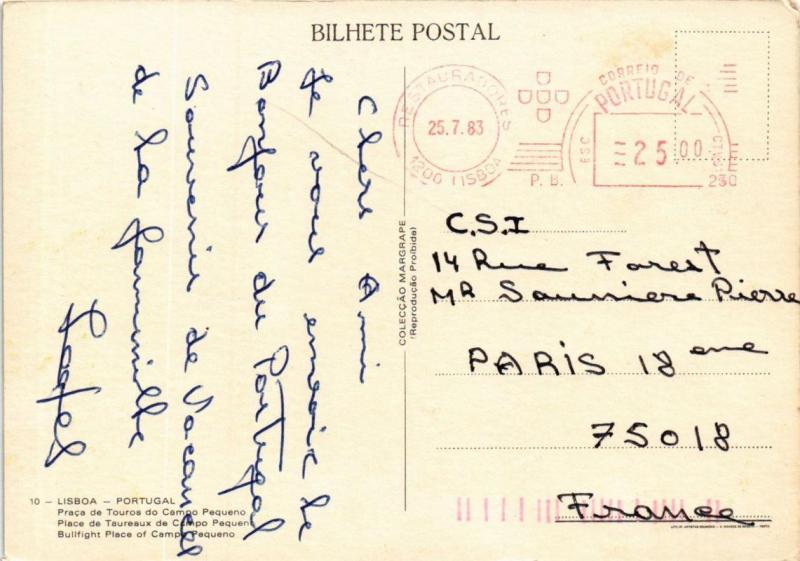 BILHETE POSTAL
Chers Ami
Je vous envoie le
Bonjour du Portugal
Souvenir de Vacances
de la Fammille
RESTAURADORES
25.7.83
1200 LISBOA
P. B.
CORREIO DE
PORTUGAL
ESC
CTVS
25 00
230
C.S.I
14 Rue Forest
MR Sauniere Pierre
PARIS 18 eme
75018
France
COLECÇÃO MARGRAPE
(Reprodução Proibida)
10 — LISBOA — PORTUGAL
Praça de Touros do Campo Pequeno
Place de Taureaux de Campo Pequeno
Bullfight Place of Campo Pequeno